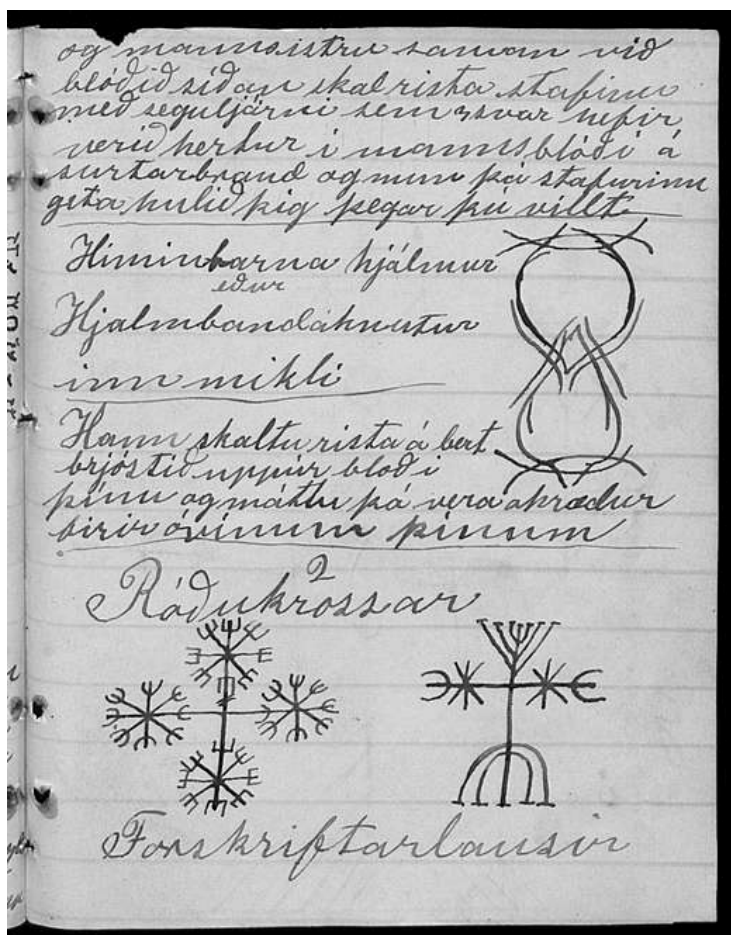 og mannsistru saman við
blóðið síðan skal rista stafinn
með seguljárni sem 3svar hefir
verið hertur í mannsblóði á
surtarbrand og mun þá stafurinn
geta hulið þig þegar þú villt
Himinbarna hjálmur
eður
Hjalmbandáhnutur
inn mikli
Hann skaltu rista á bert
brjóstið uppúr bloði
þínu og máttu þá vera ohræður
firir óvinum þínum
2
Róðukrossar
Forskriftarlausir